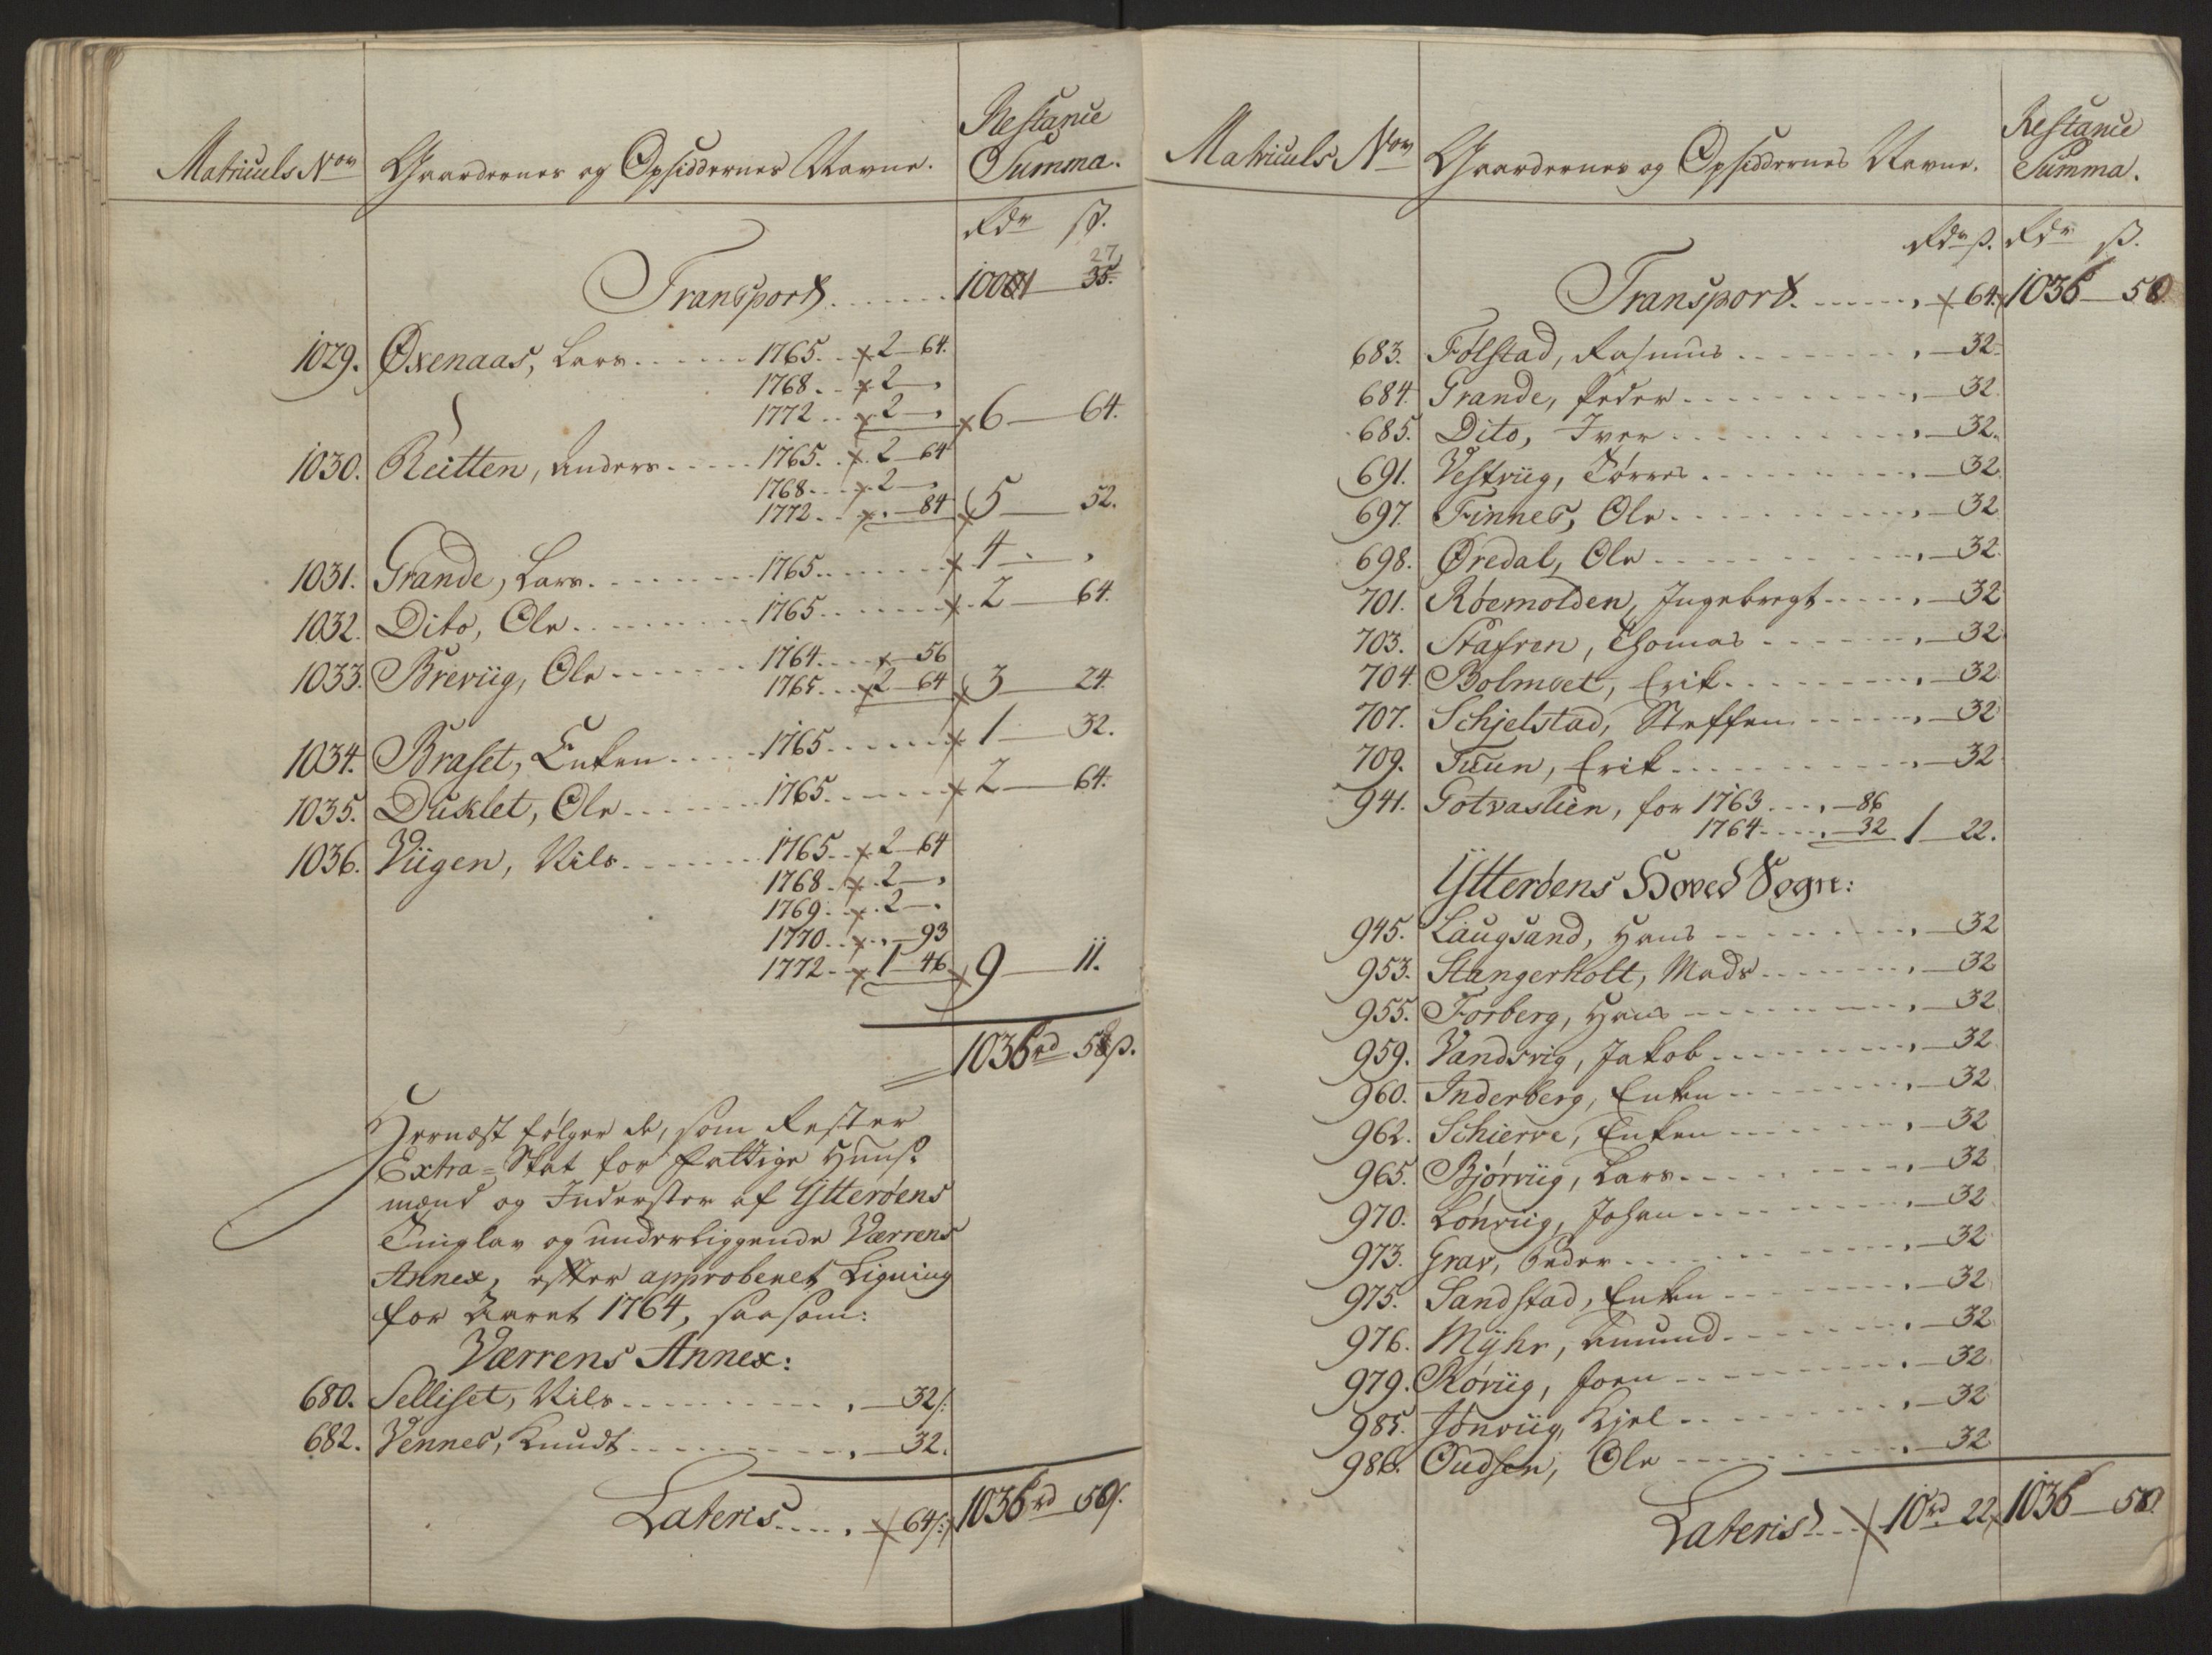 Matriculs Nor Gaardernes og Opsiddernes Navne. Restance Summa.
Rdr ß.
Transport ....... 27
1029. Øxenaas, Lars ...... 1765. 2—64.
1768. 2—,
1772. 2—, 6—64.
1030. Reitten, Anders ..... 1765. 2—64
1768. 2—,
1772. ,—84 5—52.
1031. Grande, Lars ........ 1765 ....... 4—,
1032. Dito, Ole ......... 1765 ....... 2—64.
1033. Breviig, Ole ...... 1764. —56
1765. 2—64 3—24.
1034. Braset, Enken .... 1765 ...... 1—32.
1035. Duklet, Ole ...... 1765 ...... 2—64.
1036. Viigen, Nils ....... 1765. 2—64
1768. 2—,
1769. 2—,
1770. ,—93
1772. 1—46 9—11.
1036 rd 50 ß.
Hernæst følger de, som Rester
Extra-Skat for fattige Huus-
mænd og Inderster af Ytterøens
Tinglav og underliggende Værrens
Annex, efter approberet Ligning
for Aaret 1764, saasom:
Værrens Annex:
680. Selliset, Nils .......... ,—32 ß.
682. Vennes, Knudt ......... ,—32.
Lateris ..... ,—64 ß. 1036 rd 50 ß.
Matriculs Nor Gaardernes og Opsiddernes Navne. Restance Summa.
Rdr ß. Rdr ß.
Transport ...... ,—64. 1036—50
683. Følstad, Rasmus ........ ,—32.
684. Grande, Peder ......... ,—32.
685. Dito, Iver ......... ,—32.
691. Vestviig, Tørres ........ ,—32.
697. Finnes, Ole ......... ,—32
698. Øredal, Ole ......... ,—32.
701. Røemolden, Ingebregt ..... ,—32
703. Stafren, Thomas ...... ,—32
704. Bolmoet, Erik ........ ,—32
707. Schjelstad, Steffen ..... ,—32
709. Tuun, Erik .......... ,—32
941. Gotvaslien, for 1763 .... ,—86
1764 .... ,—32 1—22.
Ytterøens Hoved Sogn:
945. Laugsand, Hans ....... ,—32
953. Stangerholt, Mads ...... ,—32
955. Forberg, Hans ........ ,—32
959. Vandsvig, Jakob ........ ,—32
960. Inderberg, Enken ....... ,—32
962. Schierve, Enken ....... ,—32
965. Bjørviig, Lars ........ ,—32
970. Lønviig, Johan ........ ,—32
973. Grav, Peder ........ ,—32
975. Sandstad, Enken ....... ,—32
976. Myhr, Amund ....... ,—32
979. Røviig, Joen ........ ,—32
985. Jønviig, Kjel ........ ,—32
986. Oudsen, Ole ........ ,—32
Lateris .... 10 rd 22 1036—50